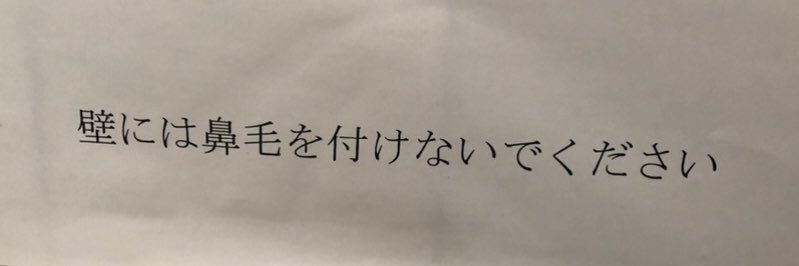 壁には鼻毛を付けないでください